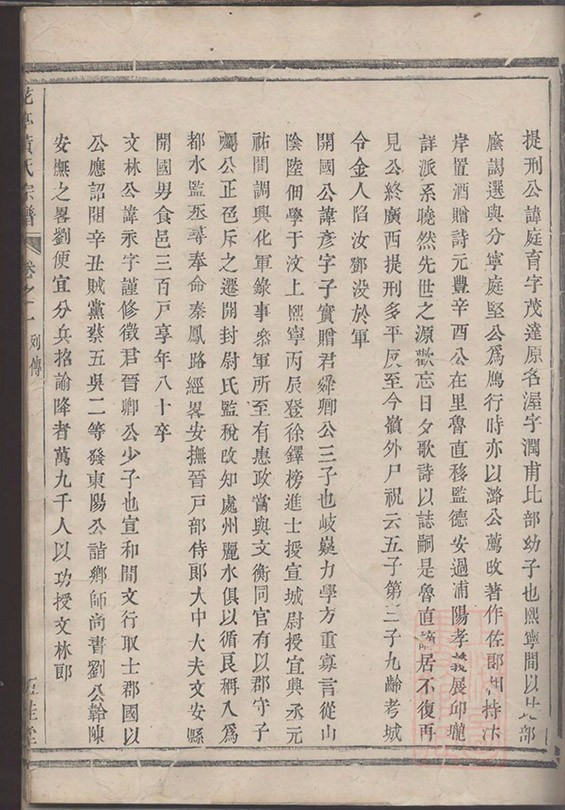 提刑公諱庭育字茂達原名渥字潤甫比部幼子也熙寧間以比部
廕謁選與分寧庭堅公為鴈行時亦以潞公薦改著作佐郎
岸置酒贈詩元豐辛酉公在里魯直移監德安過浦陽孝義展邱壠
詳派系曉然先世之源歡忘日夕歌詩以誌嗣是魯直謫居不復再
見公終廣西提刑多平反至今嶺外尸祝云五子第三子九齡考城
令金人陷汝鄧没於軍
開國公諱彥字子實贈君舜卿公三子也岐嶷力學方重寡言從山
陰陸佃學于汶上熙寧丙辰登徐鐸榜進士授宣城尉授宜興丞元
祐間調興化軍錄事叅軍所至有惠政當與文衡同官有以郡守子
囑公正色斥之遷開封尉氏監稅改知處州麗水俱以循良稱入為
都水監丞尋奉命秦鳳路經畧安撫晉戸部侍郎大中大夫文安縣
開國男食邑三百戸享年八十卒
文林公諱永字謹修徵君晉卿公少子也宣和間文行取士郡國以
公應詔閉辛丑賊黨蔡五吳二等發東陽公詣鄉師尚書劉公韐陳
安撫之畧劉便宜分兵招諭降者萬九千人以功授文林郎
黃氏宗譜
卷之一
列傳